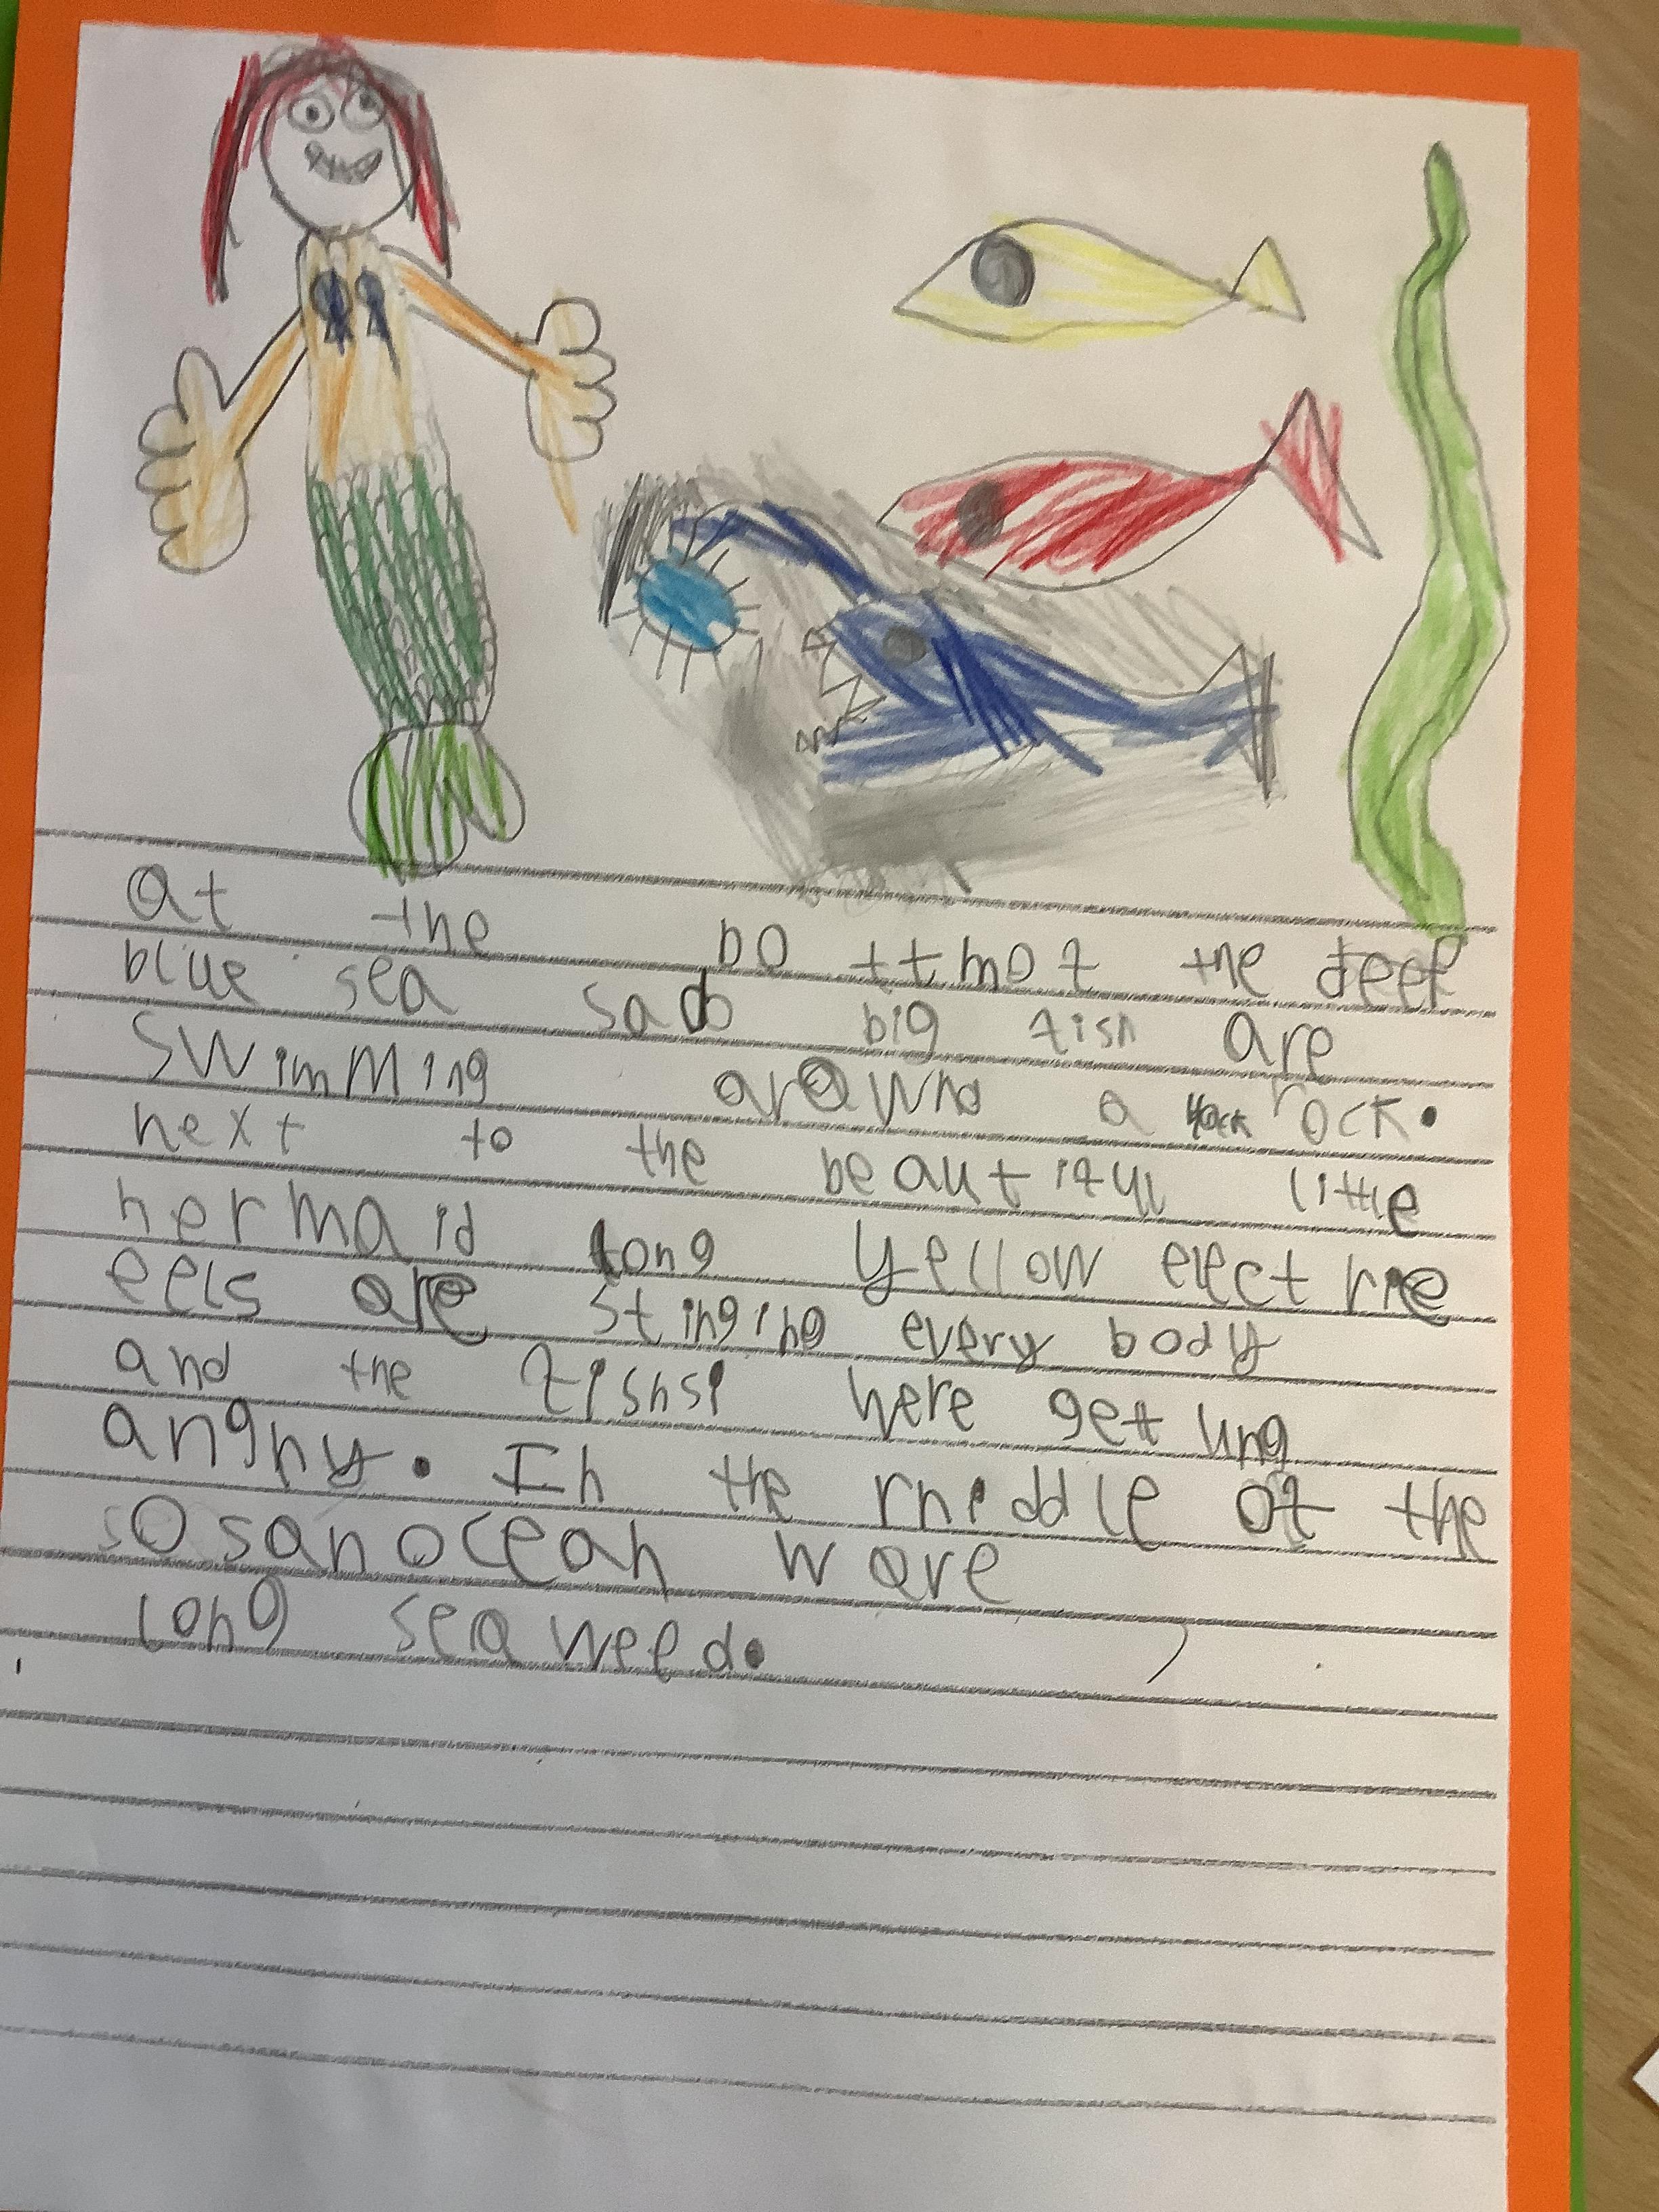 at the bottmof the deep
blue sea sad big fish are
swimming arawnd a rock.
next to the beautiful little
mermaid long yellow electric
eels are stinging every body
and the fishsi were getting
angry. In the middle of the
ocean ware
long sea weed.